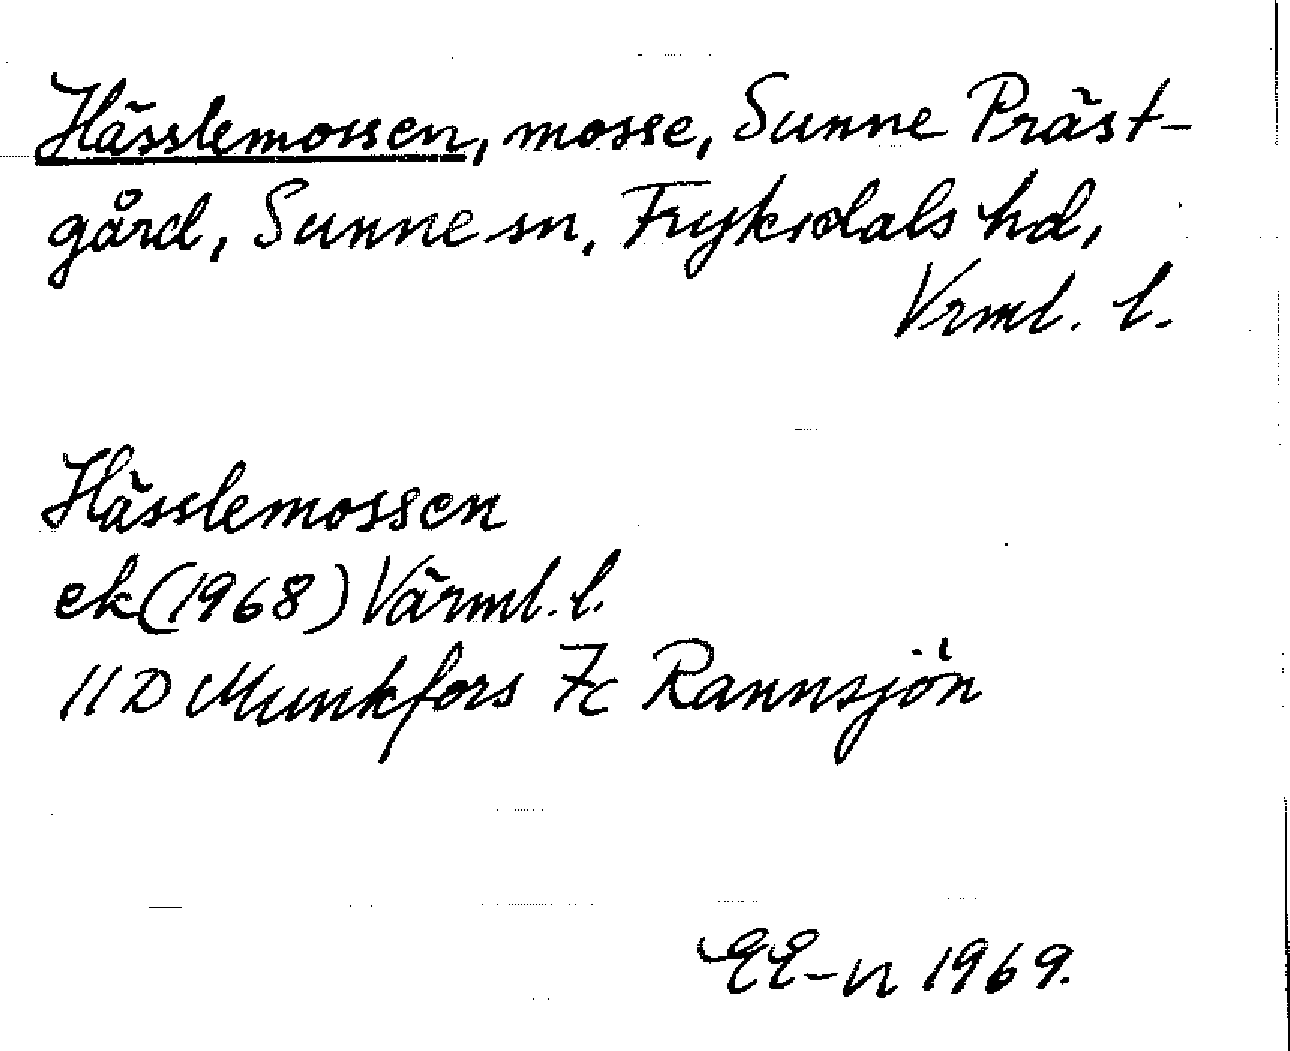 Hässlemossen, mosse, Sunne Präst-
gård, Sunne sn, Fryksdals hd,
Vrml. l.
Hässlemossen
ek (1968) Värml. l.
11 D Munkfors 7c Rannsjön
EE-n 1969.